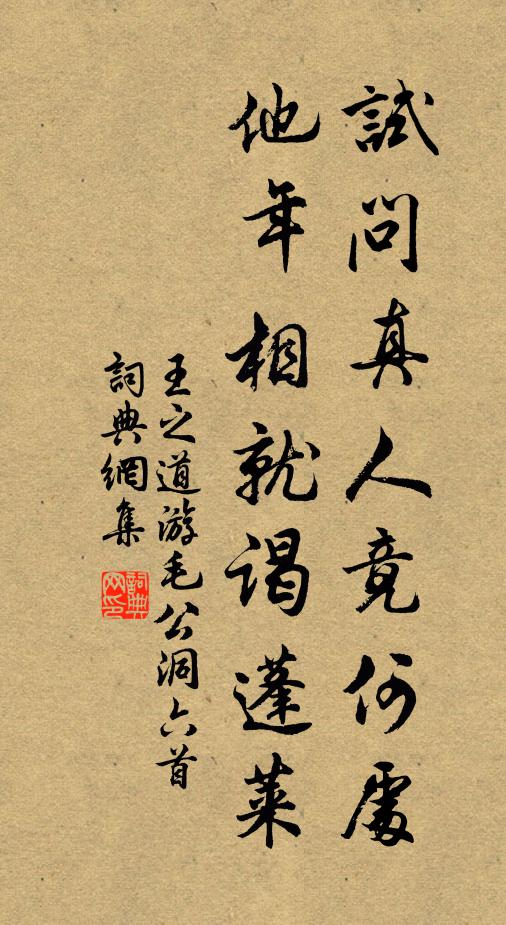 試問真人竟何處
他年相就謁蓬萊
王之道游毛公洞六首
詞典網集
詞典
网印